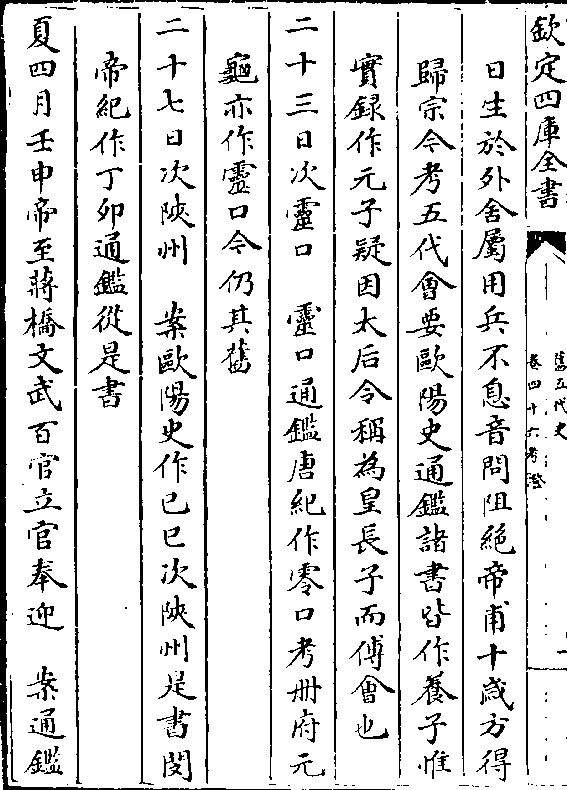 欽定四庫全書
舊五代史
卷四十六考證
日生於外舍屬用兵不息音問阻絶帝甫十歲方得
歸宗今考五代會要歐陽史通鑑諸書皆作養子惟
實録作元子疑因太后令稱為皇長子而傅會也
二十三日次靈口 靈口通鑑唐紀作零口考册府元
龜亦作靈口今仍其舊
二十七日次陜州 案歐陽史作已巳次陜州是書閔
帝紀作丁卯通鑑從是書
夏四月壬申帝至蔣橋文武百官立官奉迎 案通鑑